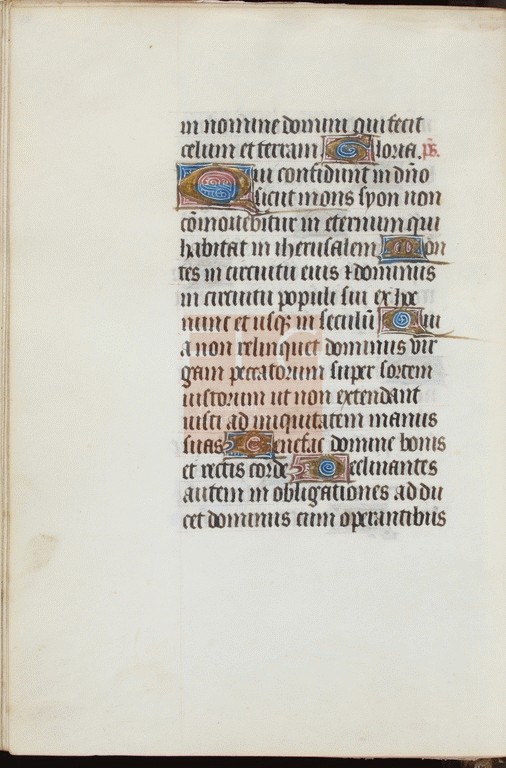 in nomine domini qui fecit
celum et terram Gloria. ps.
Qui confidunt in dño
sicut mons syon non
cõmouebitur in eternum qui
habitat in iherusalem Mon
tes in circuitu eius ⁊ dominus
in circuitu populi sui ex hoc
nunc et usqꝫ in seculũ Quia
a non relinquet dominus vir
gam peccatorum super sortem
iustorum ut non extendant
iusti ad iniquitatem manus
suas Benefac domine bonis
et rectis corde Declinantes
autem in obligationes addu
cet dominus cum operantibus